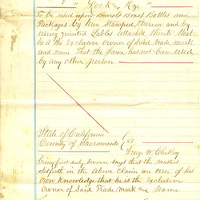 "Rock & Rye"
To be used upon Barrels Boxes Bottles and
Packages by being Stamped thereon and by
using printed Lables attached thereto that
he is the Exclusive Owner of said trade mark
and name That the same has not been used
by any other person
State of California
County of Sacramento } ss
Geo. W. Chesley
being first duly sworn says that the matters
set forth in the above Claim are true of his
own knowledge that he is the exclusive
Owner of said Trade Mark and Name